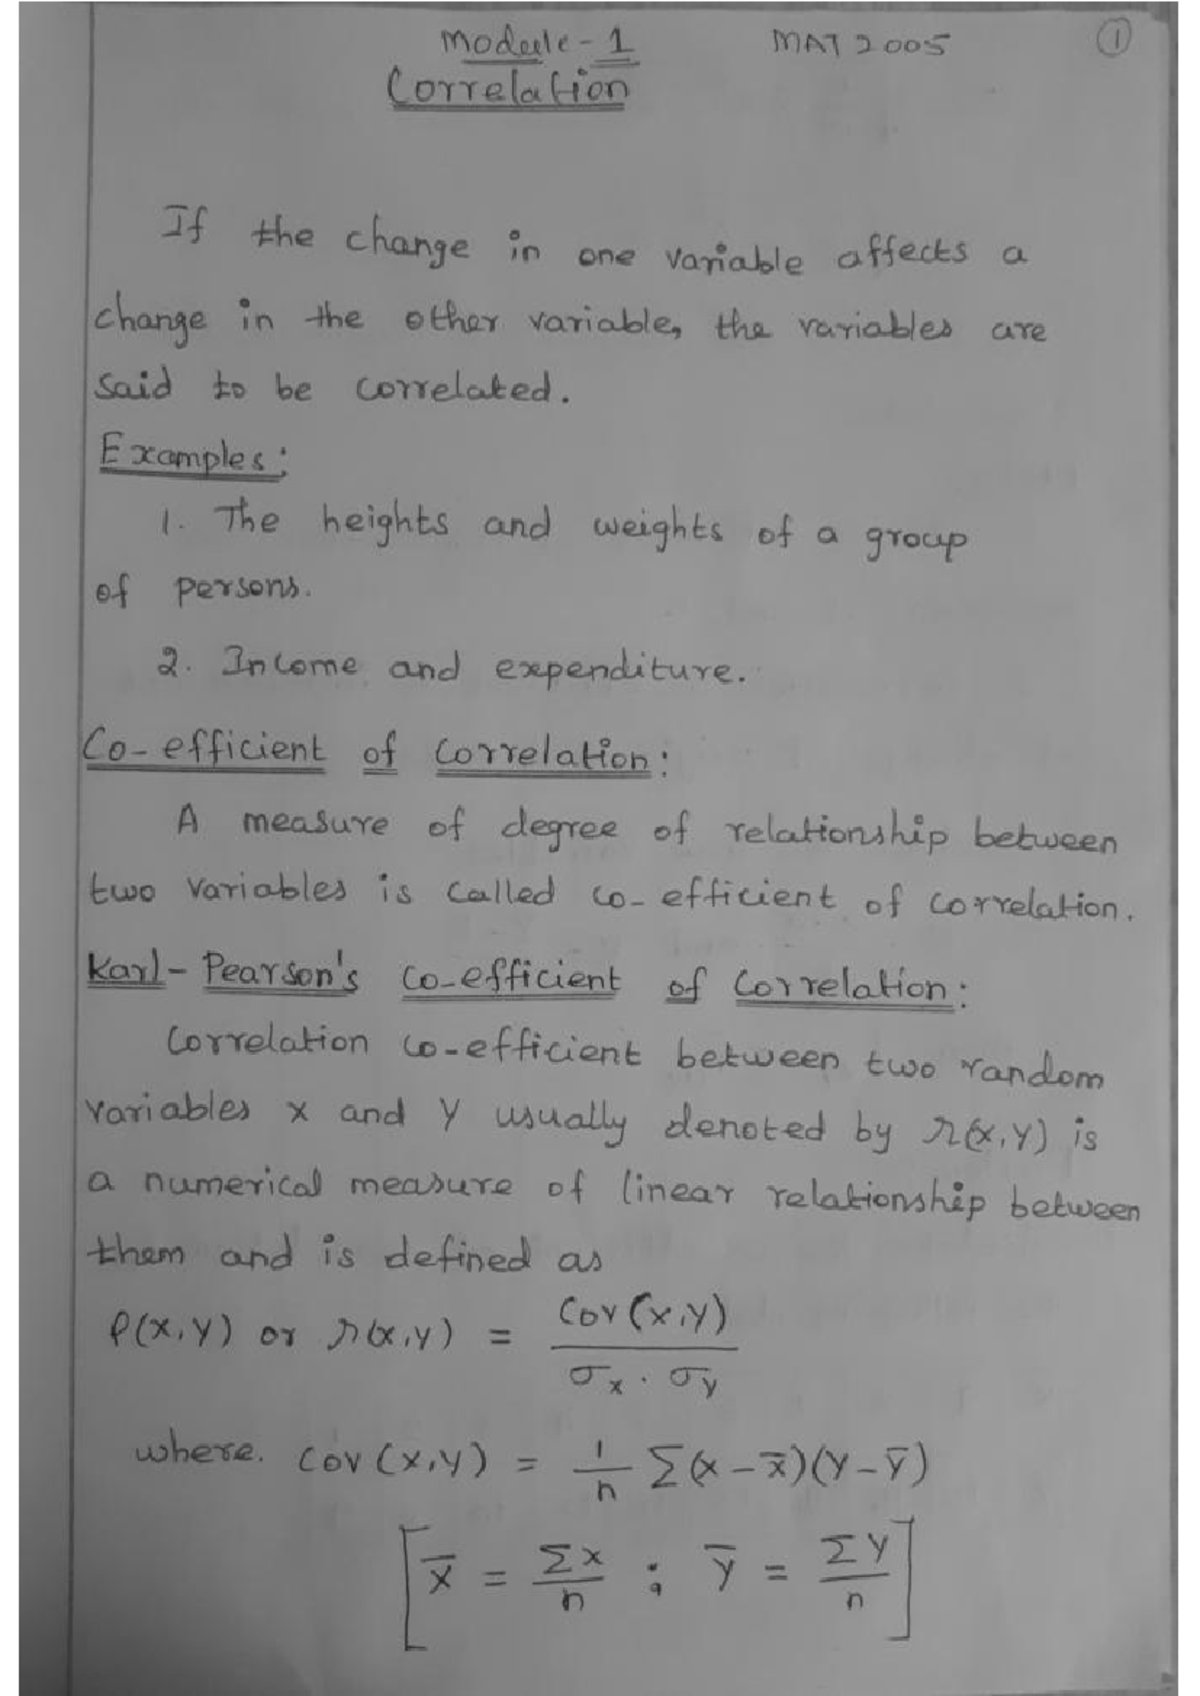 Module-1 MAT2005 1
Correlation
If the change in one variable affects a
change in the other variable, the variables are
said to be correlated.
Examples:
1. The heights and weights of a group
of persons.
2. Income and expenditure.
Co-efficient of correlation:
A measure of degree of relationship between
two variables is called co-efficient of correlation.
Karl-Pearson's co-efficient of correlation:
Correlation co-efficient between two random
variables X and Y usually denoted by r(X,Y) is
a numerical measure of linear relationship between
them and is defined as
ρ(X,Y) or r(X,Y) = Cov(X,Y) / σx · σy
where. Cov(X,Y) = 1/n Σ(X-X̄)(Y-Ȳ)
[X̄ = ΣX/n ; Ȳ = ΣY/n]